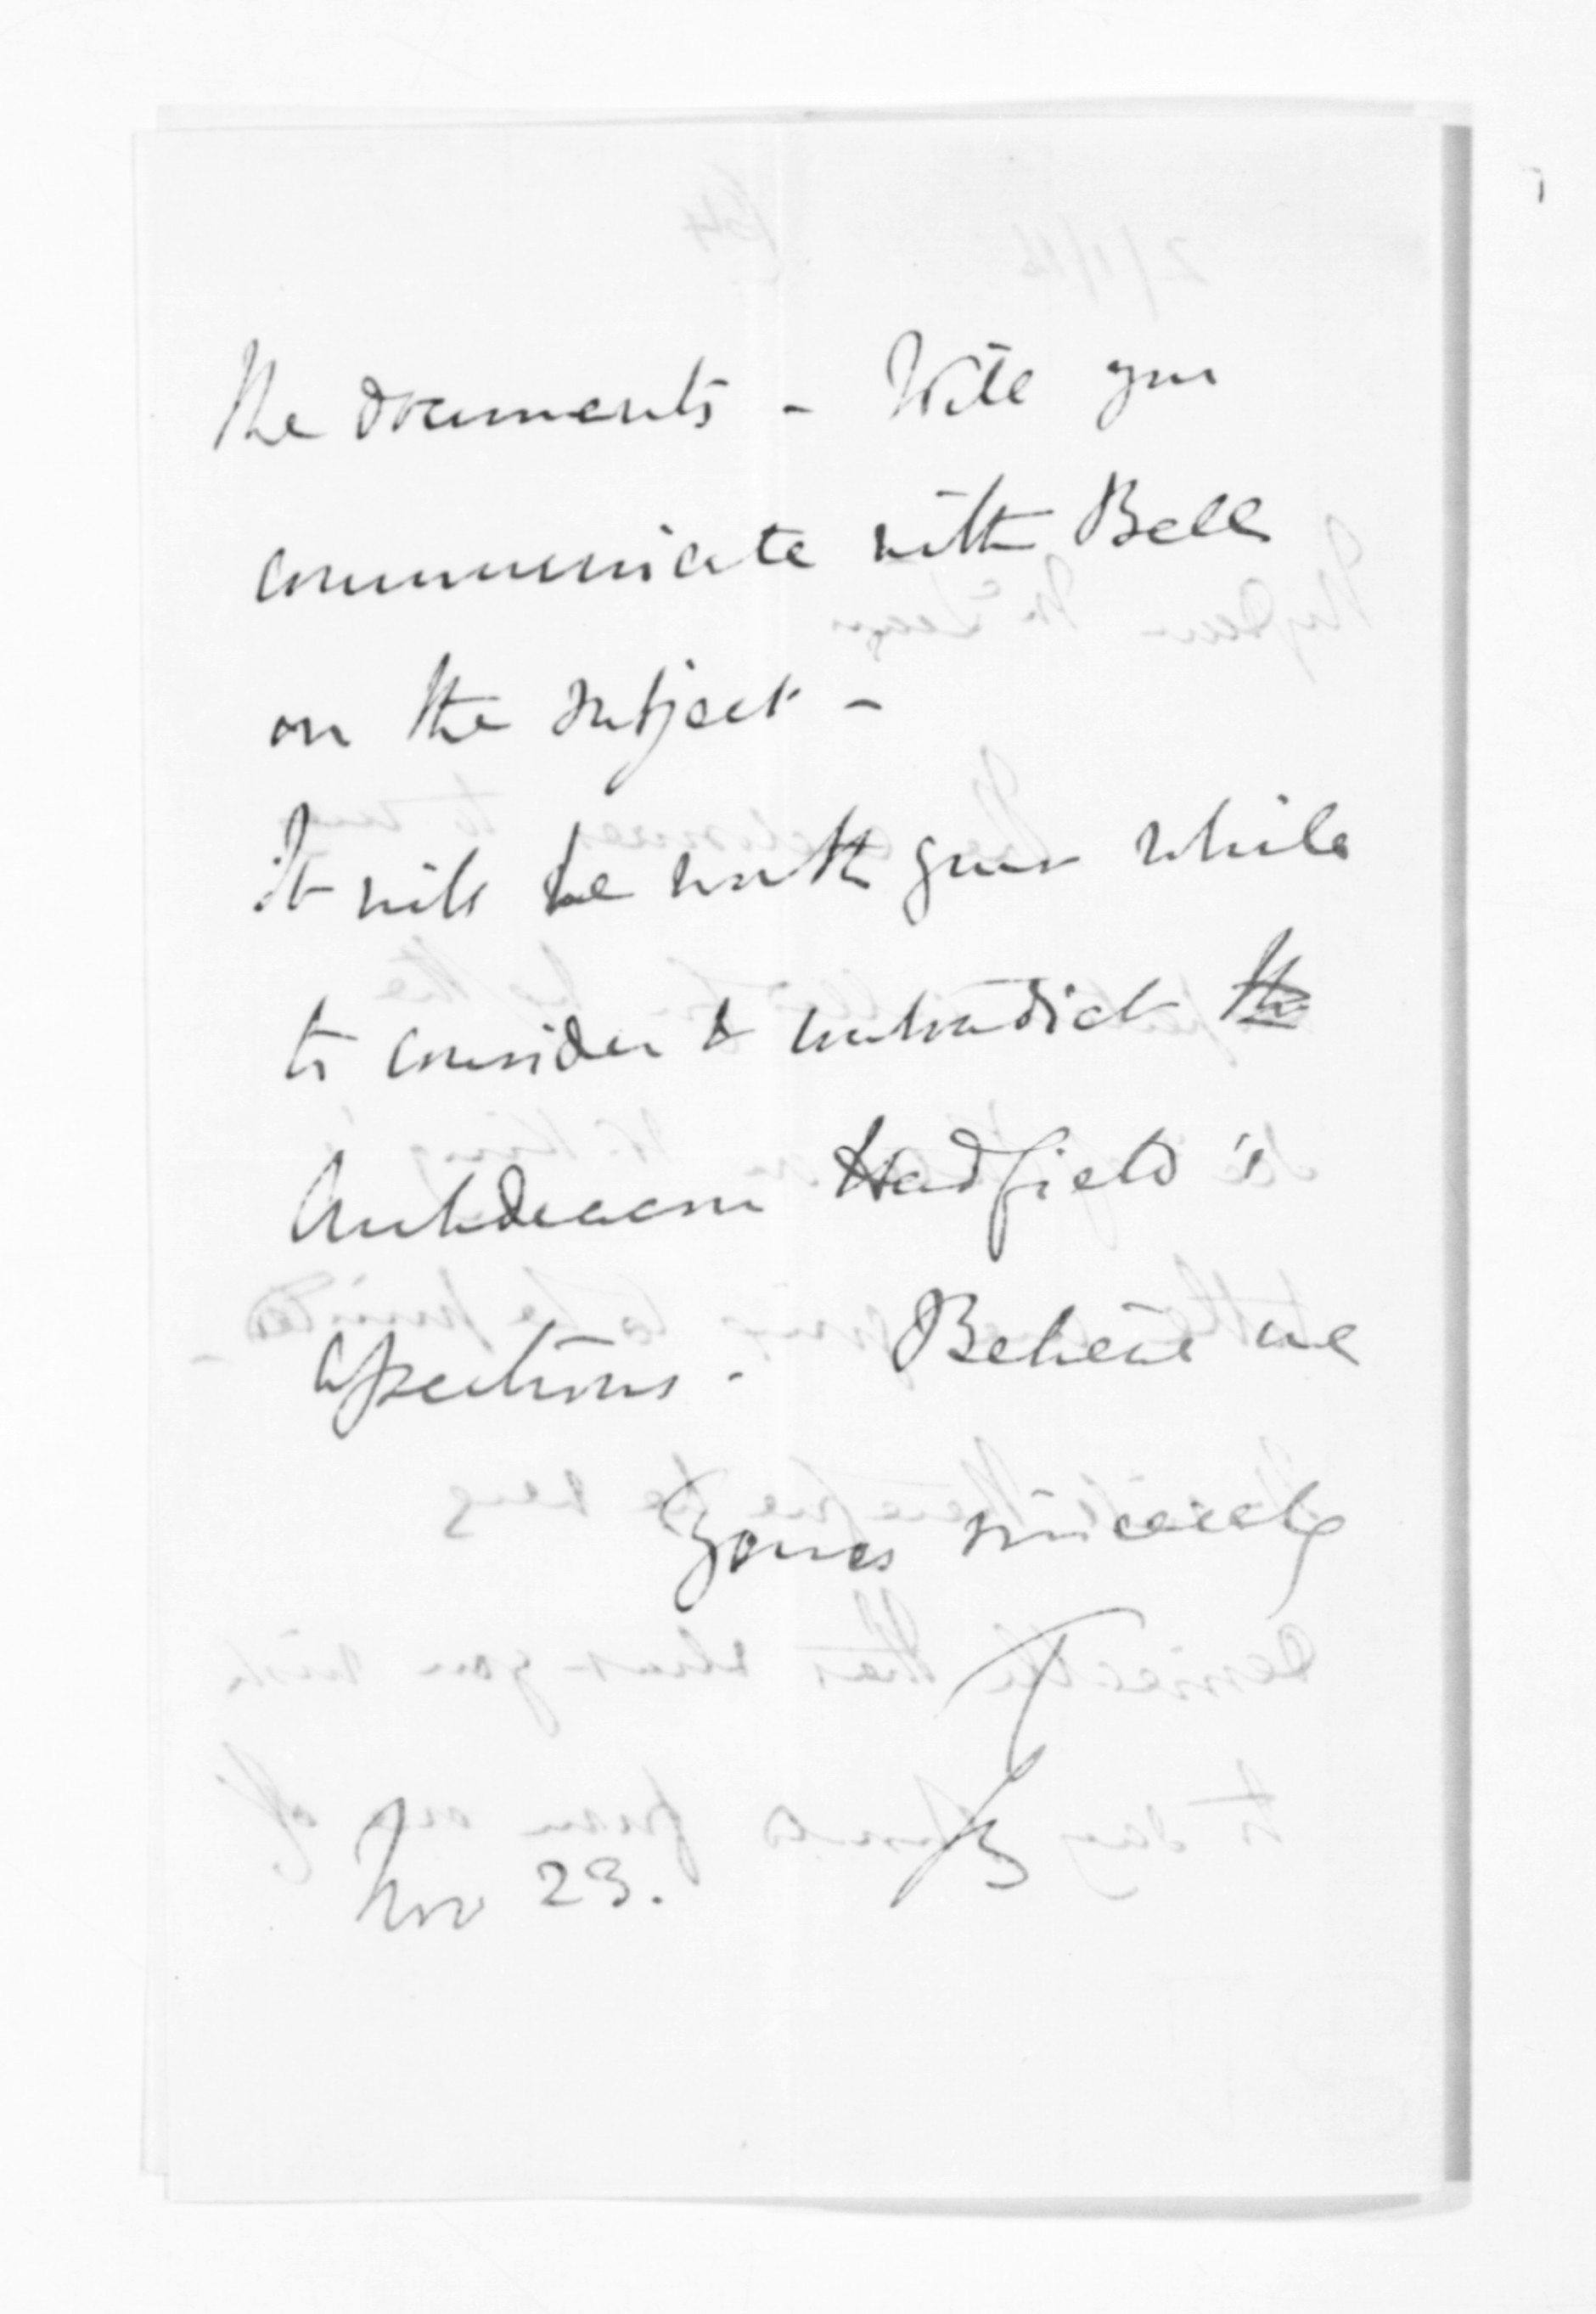 the documents - Will you
communicate with Bell
on the subject -
It will be worth your while
to consider & contradict the
Archdeacon Hadfield's
assertions. Believe me
Yours sincerely
TGB
Nov 23.